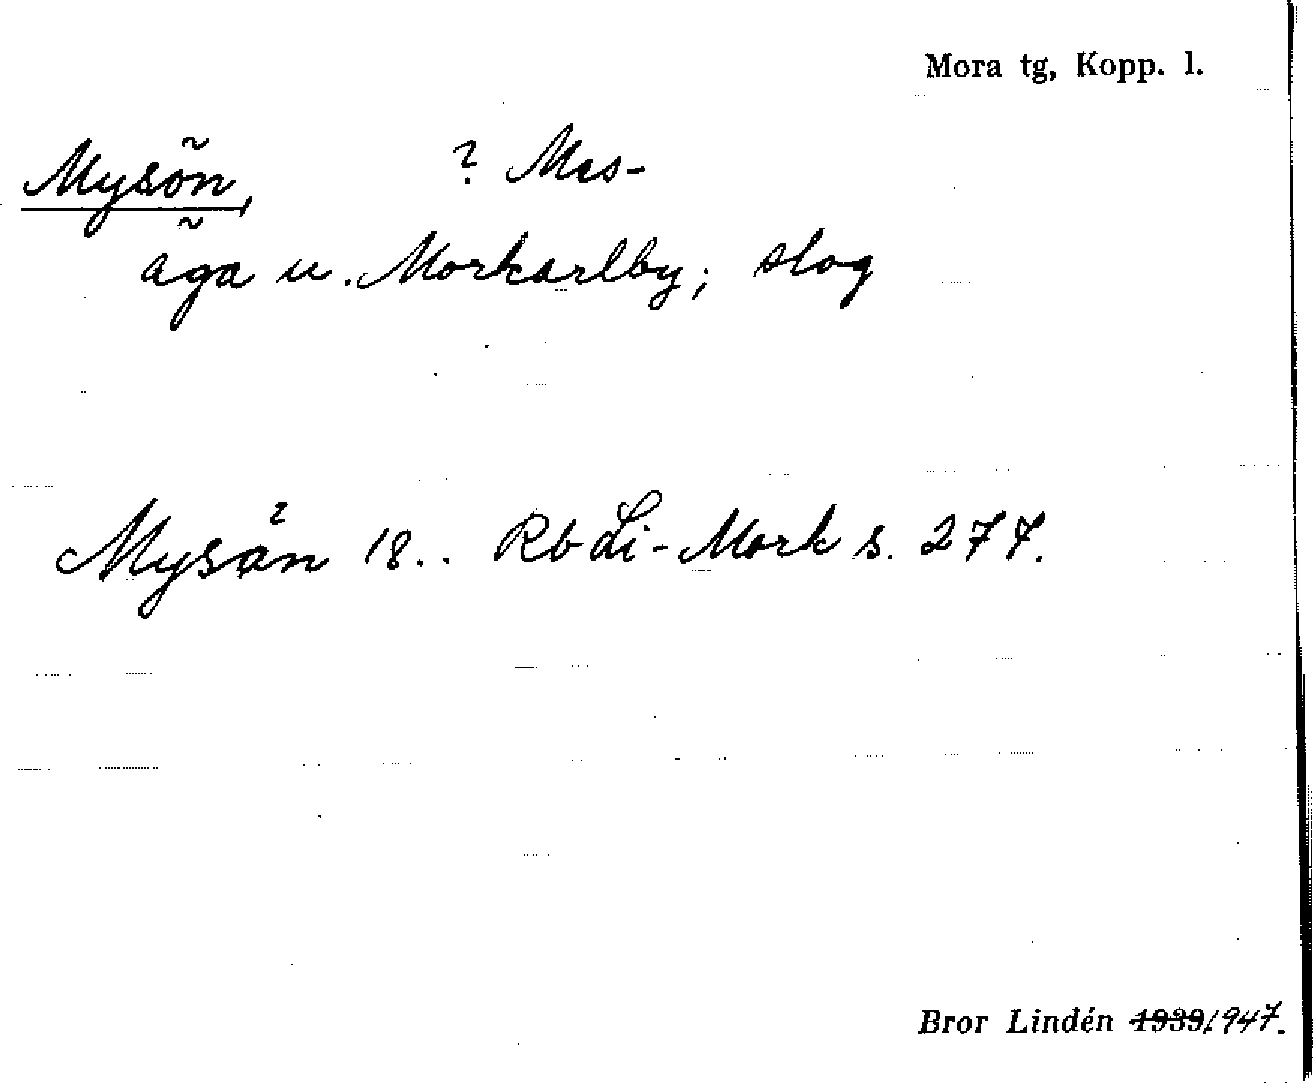 Mora tg, Kopp. l.
Mysön, ? Mis-
äga u. Morkarlby; slog
Mysån 18.. Rb Li-Mork s. 277.
Bror Lindén 1939/947.